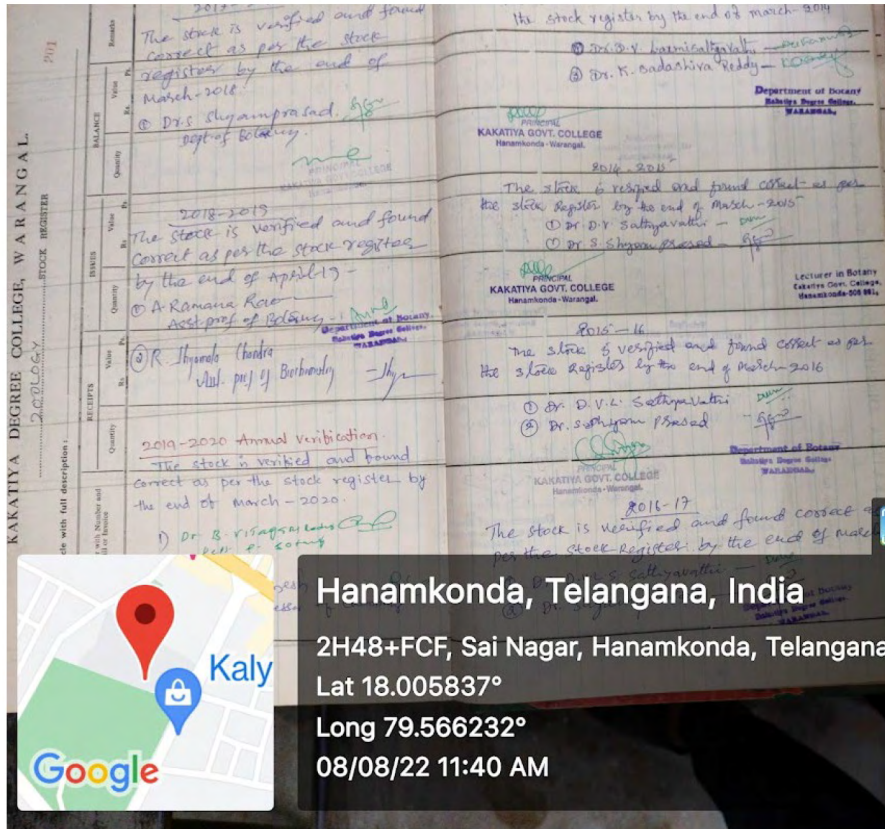 201
KAKATIYA DEGREE COLLEGE, WARANGAL.
ZOOLOGY STOCK REGISTER
cle with full description :
RECEIPTS
ISSUES
BALANCE
Remarks
Quantity
Value
Rs.
Ps.
Quantity
Value
Rs
Ps.
Quantity
Value
Rs.
Ps.
The stock is verified and found
correct as per the stock
register by the end of
March-2018.
① Dr.S Shyamprasad.
Dept of Botany.
PRINCIPAL
KAKATIYA GOVT. COLLEGE
2018-2019
The stock is verified and found
correct as per the stock register
by the end of April-19-
① A. Ramana Rao
Asst prof of Botany
Department of Botany.
Kakatiya Degree College.
WARANGAL
② R. Shyamala Chandra
Asst. prof of Biochemistry
2019-2020 Annual Veribication.
The stock is veribied and bound
correct as per the stock register by
the end of March-2020.
1) Dr B.
the stock register by the end of march-2014
② Dr. K. Sadashiva Reddy
Department of Botany
Kakatiya Degree College,
WARANGAL.
PRINCIPAL
KAKATIYA GOVT. COLLEGE
Hanamkonda-Warangal.
2014-2015
The stock is verified and found correct as per
the stock register by the end of March-2015
① Dr. D.V. Sathyavathi
② Dr S. Shyam Prasad
PRINCIPAL
KAKATIYA GOVT. COLLEGE
Hanamkonda-Warangal.
Lecturer in Botany
Kakatiya Govt. College,
Hanamkonda-506 001.
2015-16
The stock is verified and found correct as per
the stock Register by the end of March-2016
① Dr. D.V.L. Sathyavathi
② Dr. S. Shyam Prasad
PRINCIPAL
KAKATIYA GOVT. COLLEGE
Hanamkonda-Warangal.
Department of Botany
Kakatiya Degree College
WARANGAL.
2016-17
The stock is verified and found correct
per the stock Register by the end of March
Sathyavathi
Kaly
Google
Hanamkonda, Telangana, India
2H48+FCF, Sai Nagar, Hanamkonda, Telangana
Lat 18.005837°
Long 79.566232°
08/08/22 11:40 AM